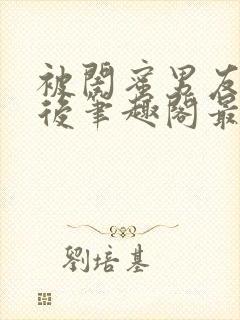 被閨蜜男友
後筆趣閣最
劉培基